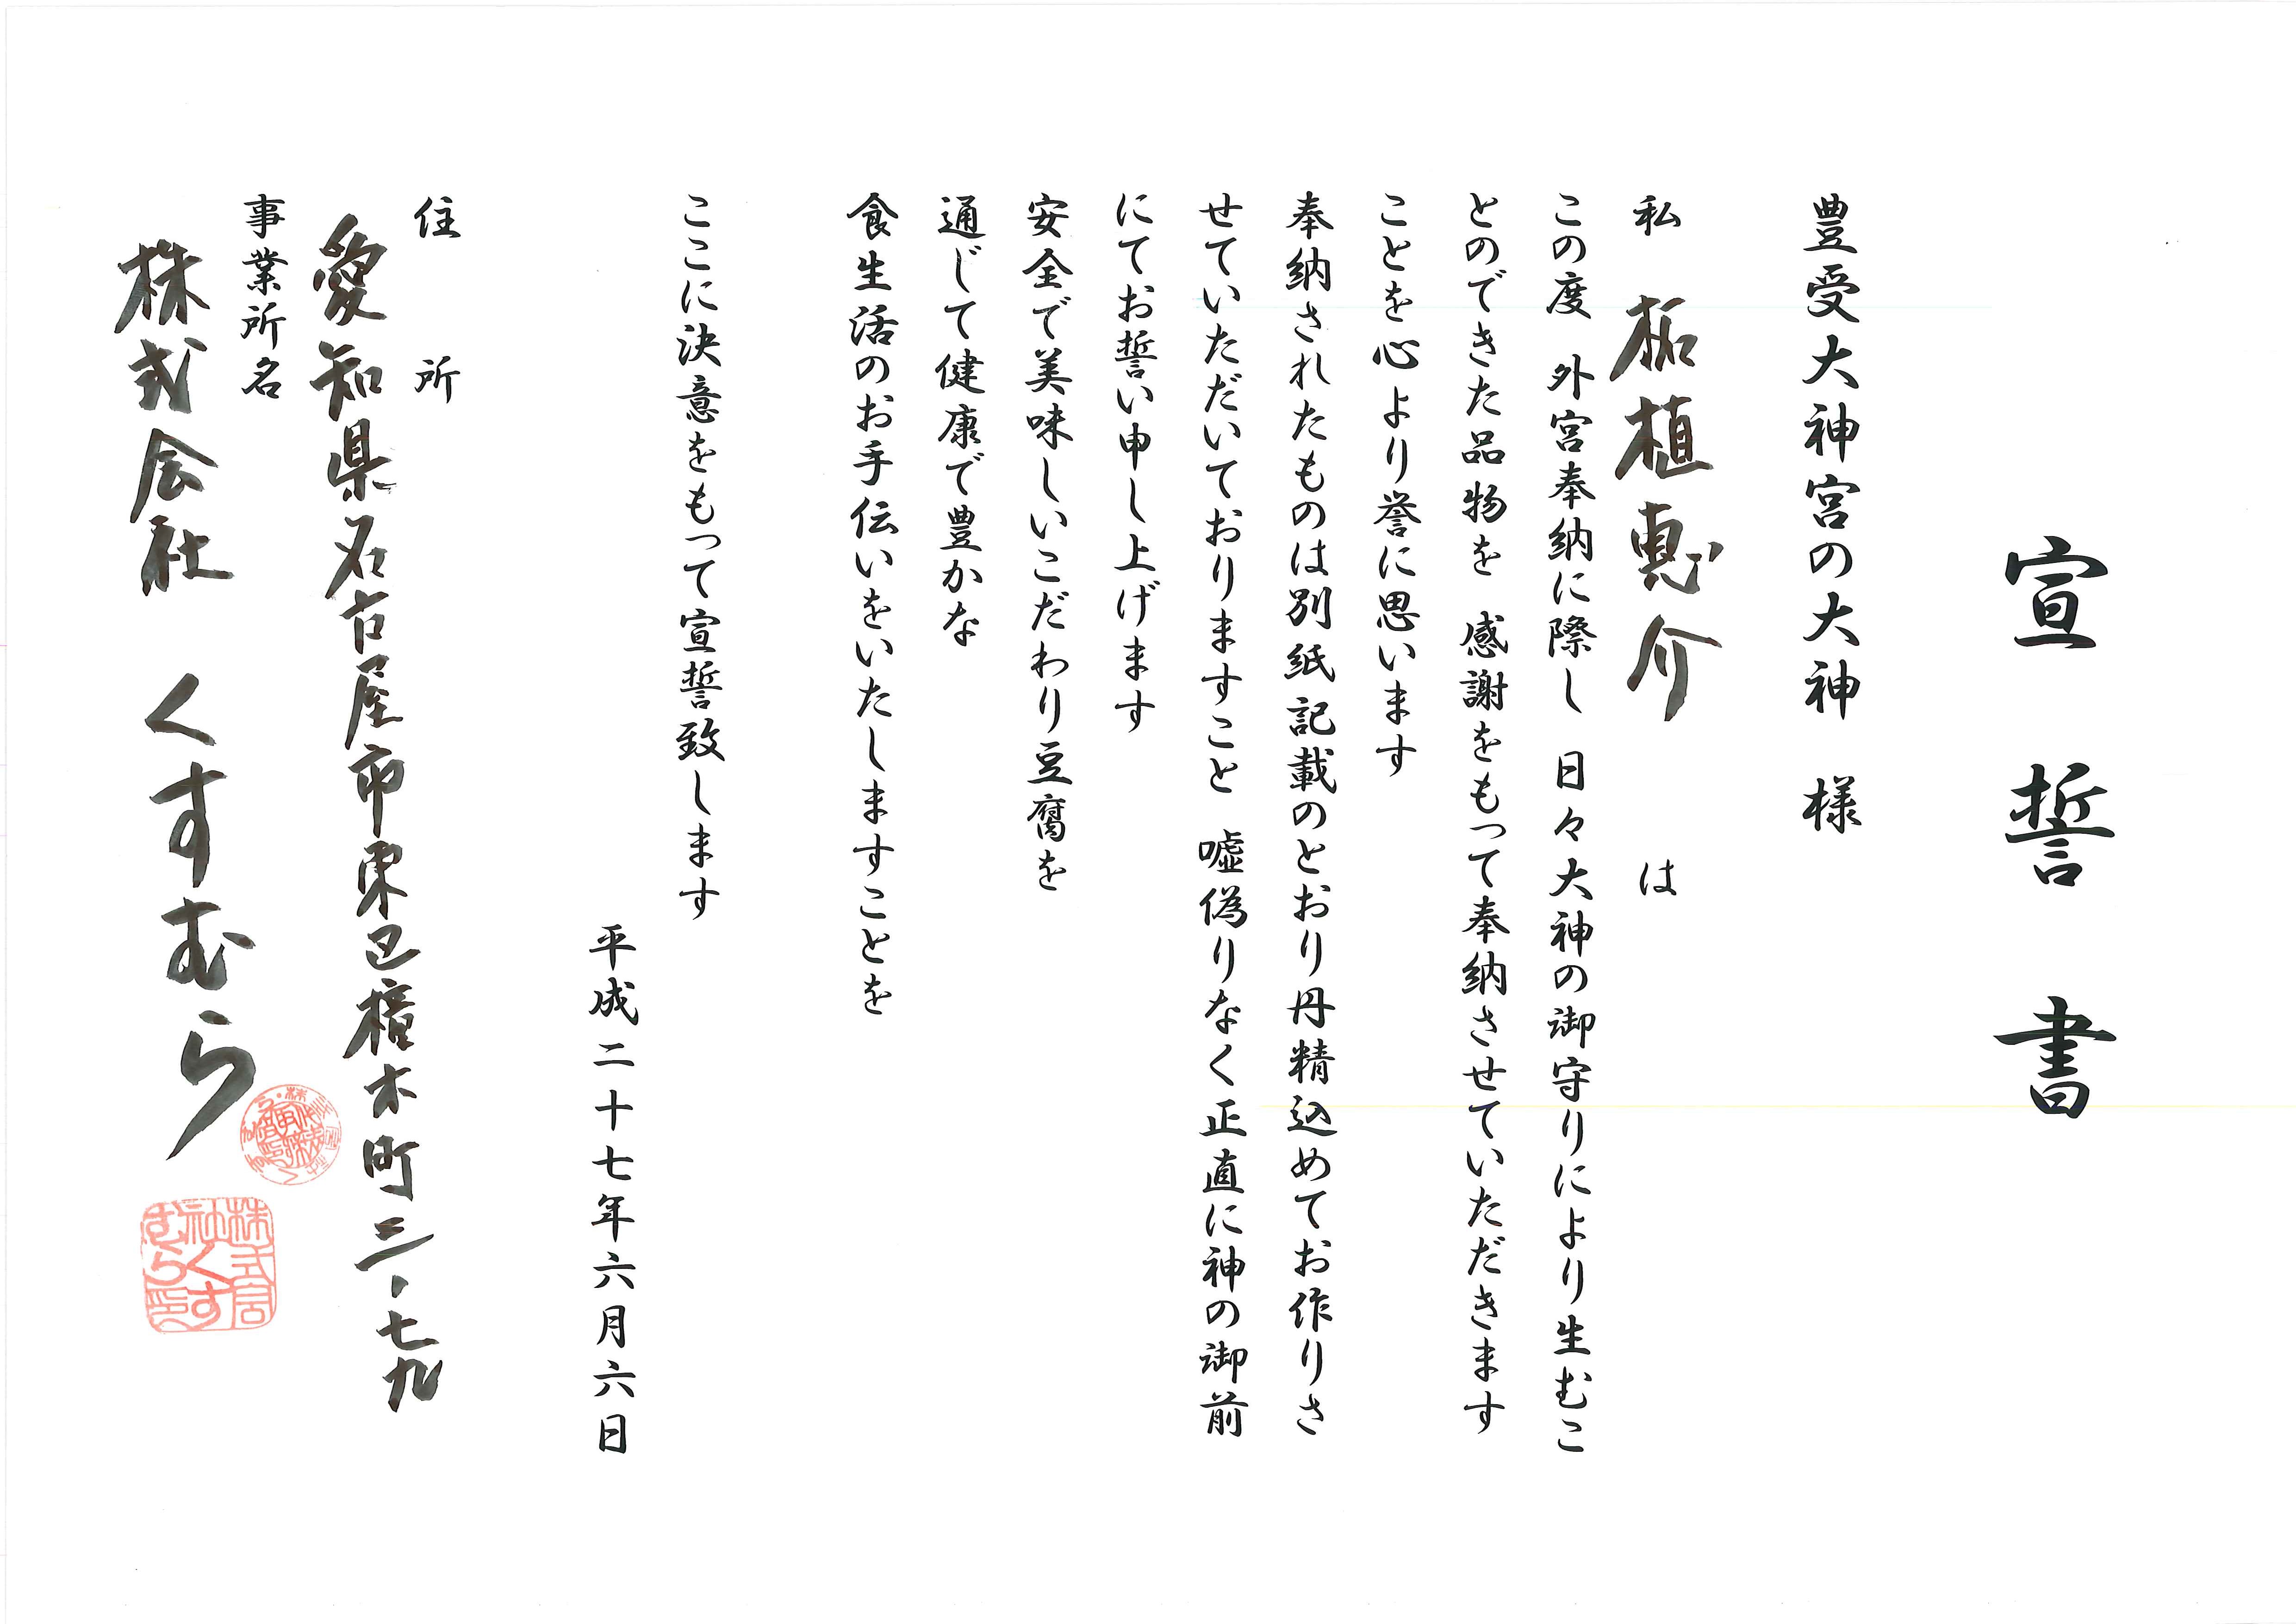 宣誓書
豊受大神宮の大神 様
私 柘植恵介 は
この度 外宮奉納に際し 日々大神の御守りにより生むこ
とのできた品物を 感謝をもって奉納させていただきます
ことを心より誉に思います
奉納されたものは別紙記載のとおり丹精込めてお作りさ
せていただいておりますこと 嘘偽りなく正直に神の御前
にてお誓い申し上げます
安全で美味しいこだわり豆腐を
通じて健康で豊かな
食生活のお手伝いをいたしますことを
ここに決意をもって宣誓致します
平成二十七年六月六日
住所
愛知県名古屋市東区橦木町三-七九
事業所名
株式会社 くすむら
株式会社くすむら印